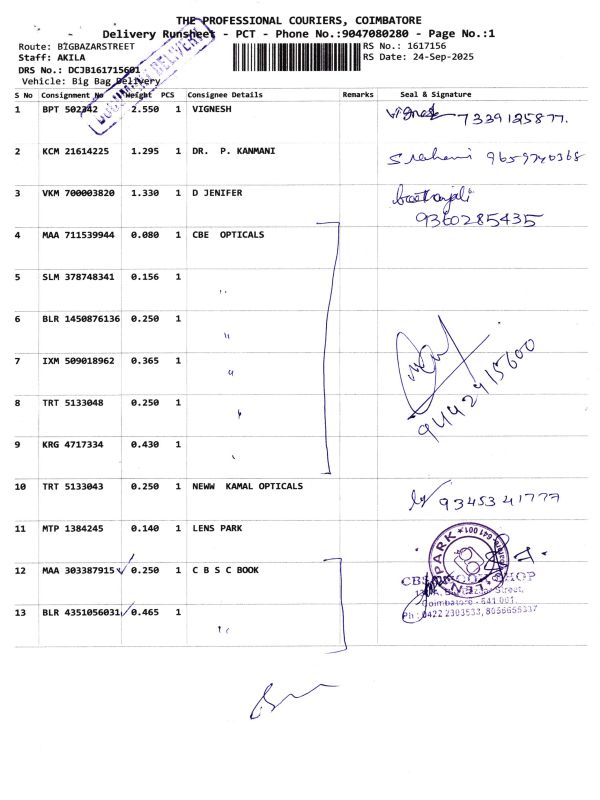 THE PROFESSIONAL COURIERS, COIMBATORE
Delivery Runsheet - PCT - Phone No.:9047080280 - Page No.:1
Route: BIGBAZARSTREET RS No.: 1617156
Staff: AKILA RS Date: 24-Sep-2025
DRS No.: DCJB161715601
Vehicle: Big Bag Delivery
DOCUMENT DELIVERY
S No Consignment No Weight PCS Consignee Details Remarks Seal & Signature
1 BPT 502342 2.550 1 VIGNESH Vignesh 7339125877.
2 KCM 21614225 1.295 1 DR. P. KANMANI 9659740368
3 VKM 700003820 1.330 1 D JENIFER
9360285435
4 MAA 711539944 0.080 1 CBE OPTICALS
5 SLM 378748341 0.156 1 "
6 BLR 1450876136 0.250 1 "
7 IXM 509018962 0.365 1 "
8 TRT 5133048 0.250 1 "
9 KRG 4717334 0.430 1 "
9442915600
10 TRT 5133043 0.250 1 NEWW KAMAL OPTICALS 9345341777
11 MTP 1384245 0.140 1 LENS PARK
12 MAA 303387915 0.250 1 C B S C BOOK
13 BLR 4351056031 0.465 1 "
CBSC BOOK SHOP
Street,
Coimbatore - 641 001.
Ph : 0422 2303533, 8056655337